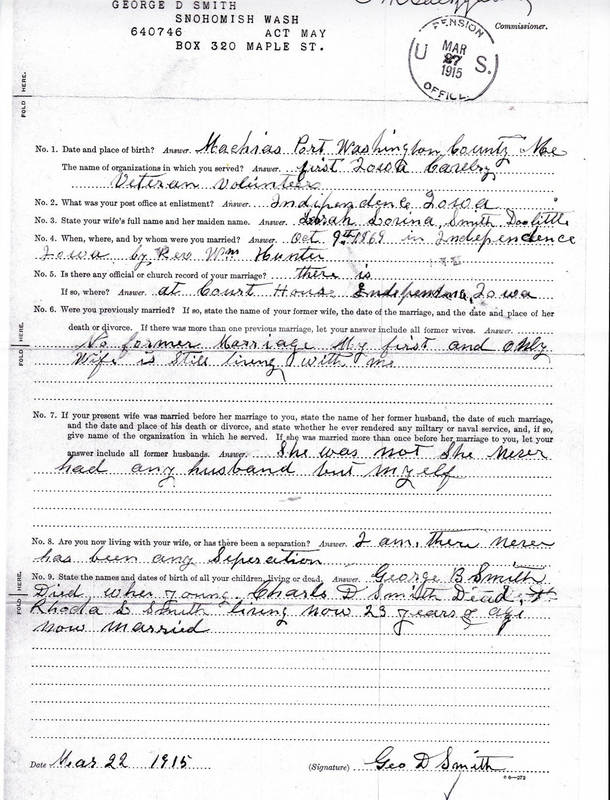 GEORGE D SMITH
SNOHOMISH WASH
640746 ACT MAY
BOX 320 MAPLE ST.
Commissioner.
PENSION
U MAR S.
27
1915
OFFICE
FOLD HERE.
No. 1. Date and place of birth? Answer. Machias Port Washington County Me
The name of organizations in which you served? Answer. first Iowa Cavelry
Veteran Volunteer
No. 2. What was your post office at enlistment? Answer. Indipendence Iowa
No. 3. State your wife's full name and her maiden name. Answer. Sarah Lorina Smith Doolittle
No. 4. When, where, and by whom were you married? Answer. Oct 9th 1869 in Independence
Iowa by Rev Wm Hunter
No. 5. Is there any official or church record of your marriage? Answer. there is
If so, where? Answer. at Court House Independence, Iowa
No. 6. Were you previously married? If so, state the name of your former wife, the date of the marriage, and the date and place of her
death or divorce. If there was more than one previous marriage, let your answer include all former wives. Answer.
FOLD HERE.
No former Marriage My first and only
Wife is still living with me
No. 7. If your present wife was married before her marriage to you, state the name of her former husband, the date of such marriage,
and the date and place of his death or divorce, and state whether he ever rendered any military or naval service, and, if so,
give name of the organization in which he served. If she was married more than once before her marriage to you, let your
answer include all former husbands. Answer. She was not She Never
had any husband but Myself
No. 8. Are you now living with your wife, or has there been a separation? Answer. I am, there never
has been any Seperation
No. 9. State the names and dates of birth of all your children, living or dead. Answer. George B Smith
FOLD HERE.
Died when young, Charls D Smith Dead,
Rhoda L Smith living now 23 years of age
now married
Date Mar 22 1915 (Signature) Geo D Smith
6—273